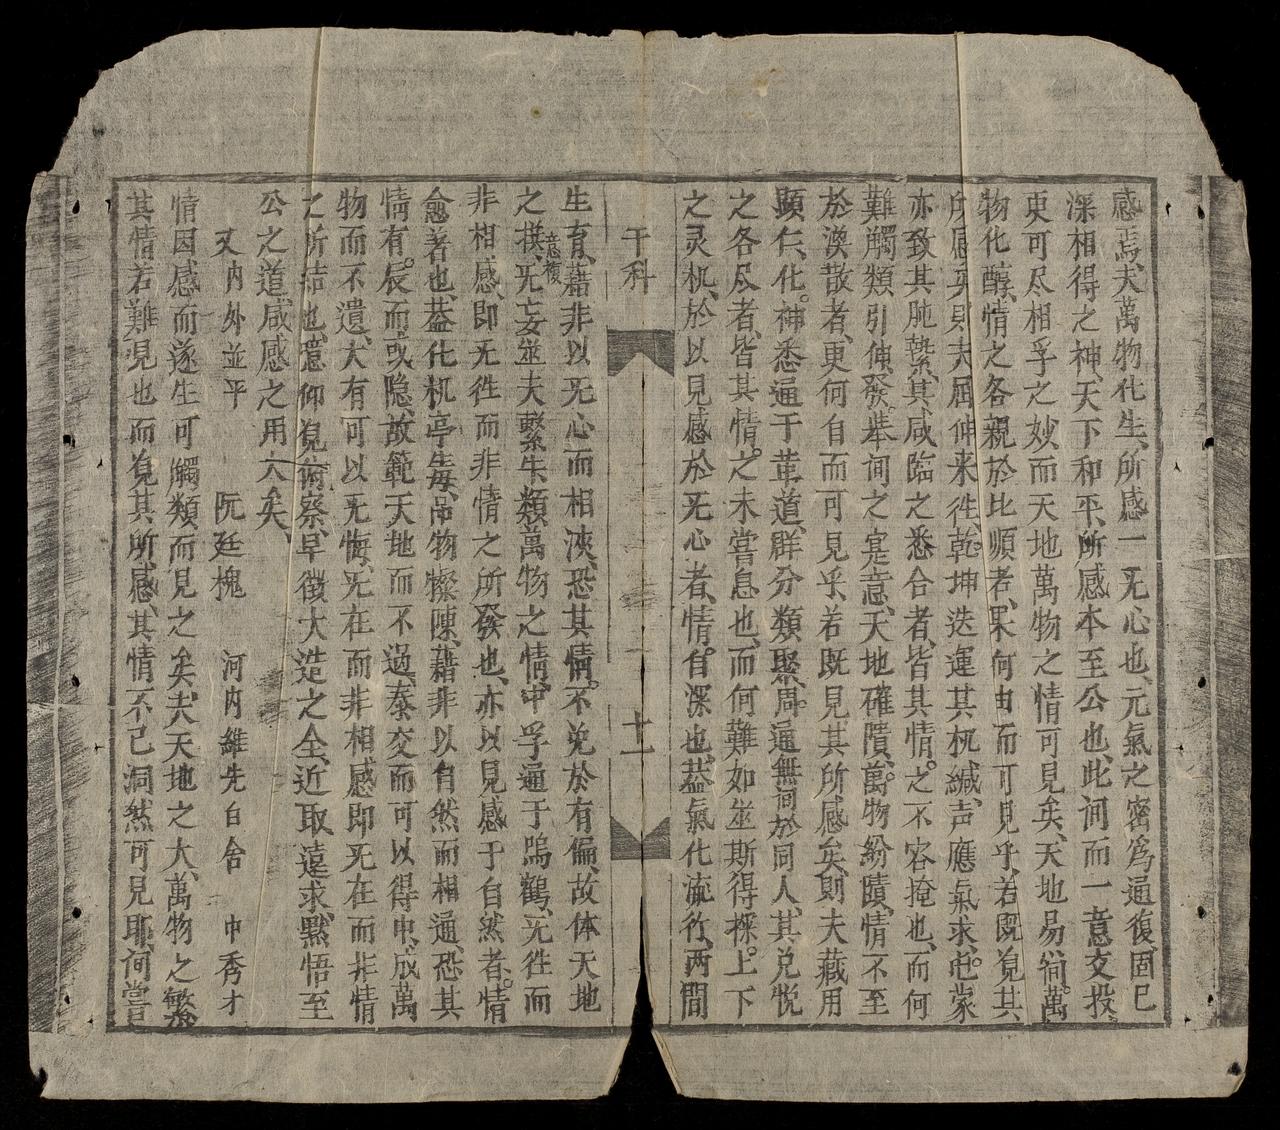 感焉、夫萬物化生、所感一旡心也、元氣之密為通復、固已
深相得之神、天下和平、所感本至公也、此间而一意交投、
更可尽相孚之妙、而天地萬物之情可見矣、天地易簡、萬
物化醇、情之各親於比順者、果何由而可見乎、若既覓其
所感矣、則夫屈伸来徃、乾坤迭運其机緘、声應氣求、屯蒙
亦致其肫摯、其咸臨之悉合者、皆其情之不容掩也、而何
難觸類引伸、發舉间之寔意、天地確隤、萬物紛賾、情不至
於渙散者、更何自而可見乎、若既見其所感矣、則夫藏用
顕仁、化神悉通于革道、群分類聚、周遍無间於同人、其兌悅
之各尽者、皆其情之未嘗息也、而何難如斯得探、上下
之灵机、於以見感於旡心者、情自深也、盖氣化流行、两間
千科
十一
生育、藉非以旡心而相浹、恐其情不免於有偏、故体天地
之撰、旡妄並夫繫生類、萬物之情、中孚通于鳴鶴、旡徃而
意複
非相感、即旡徃而非情之所發也、亦以見感于自然者、情
愈著也、盖化机亭毒、品物燦陳、藉非以自然而相通、恐其
情有辰而或隐、故範天地而不過、泰交而可以得中、成萬
物而不遺、大有可以旡悔、旡在而非相感、即旡在而非情
之所结也、意仰覓俯察、早徵大造之全、近取遠求、默悟至
公之道、咸感之用大矣、
又内外並平 阮廷槐 河内維先白舍 中秀才
情因感而遂生、可觸類而見之矣、夫天地之大、萬物之繁
其情若難見也、而覓其所感、其情不已洞然可見耶、何嘗